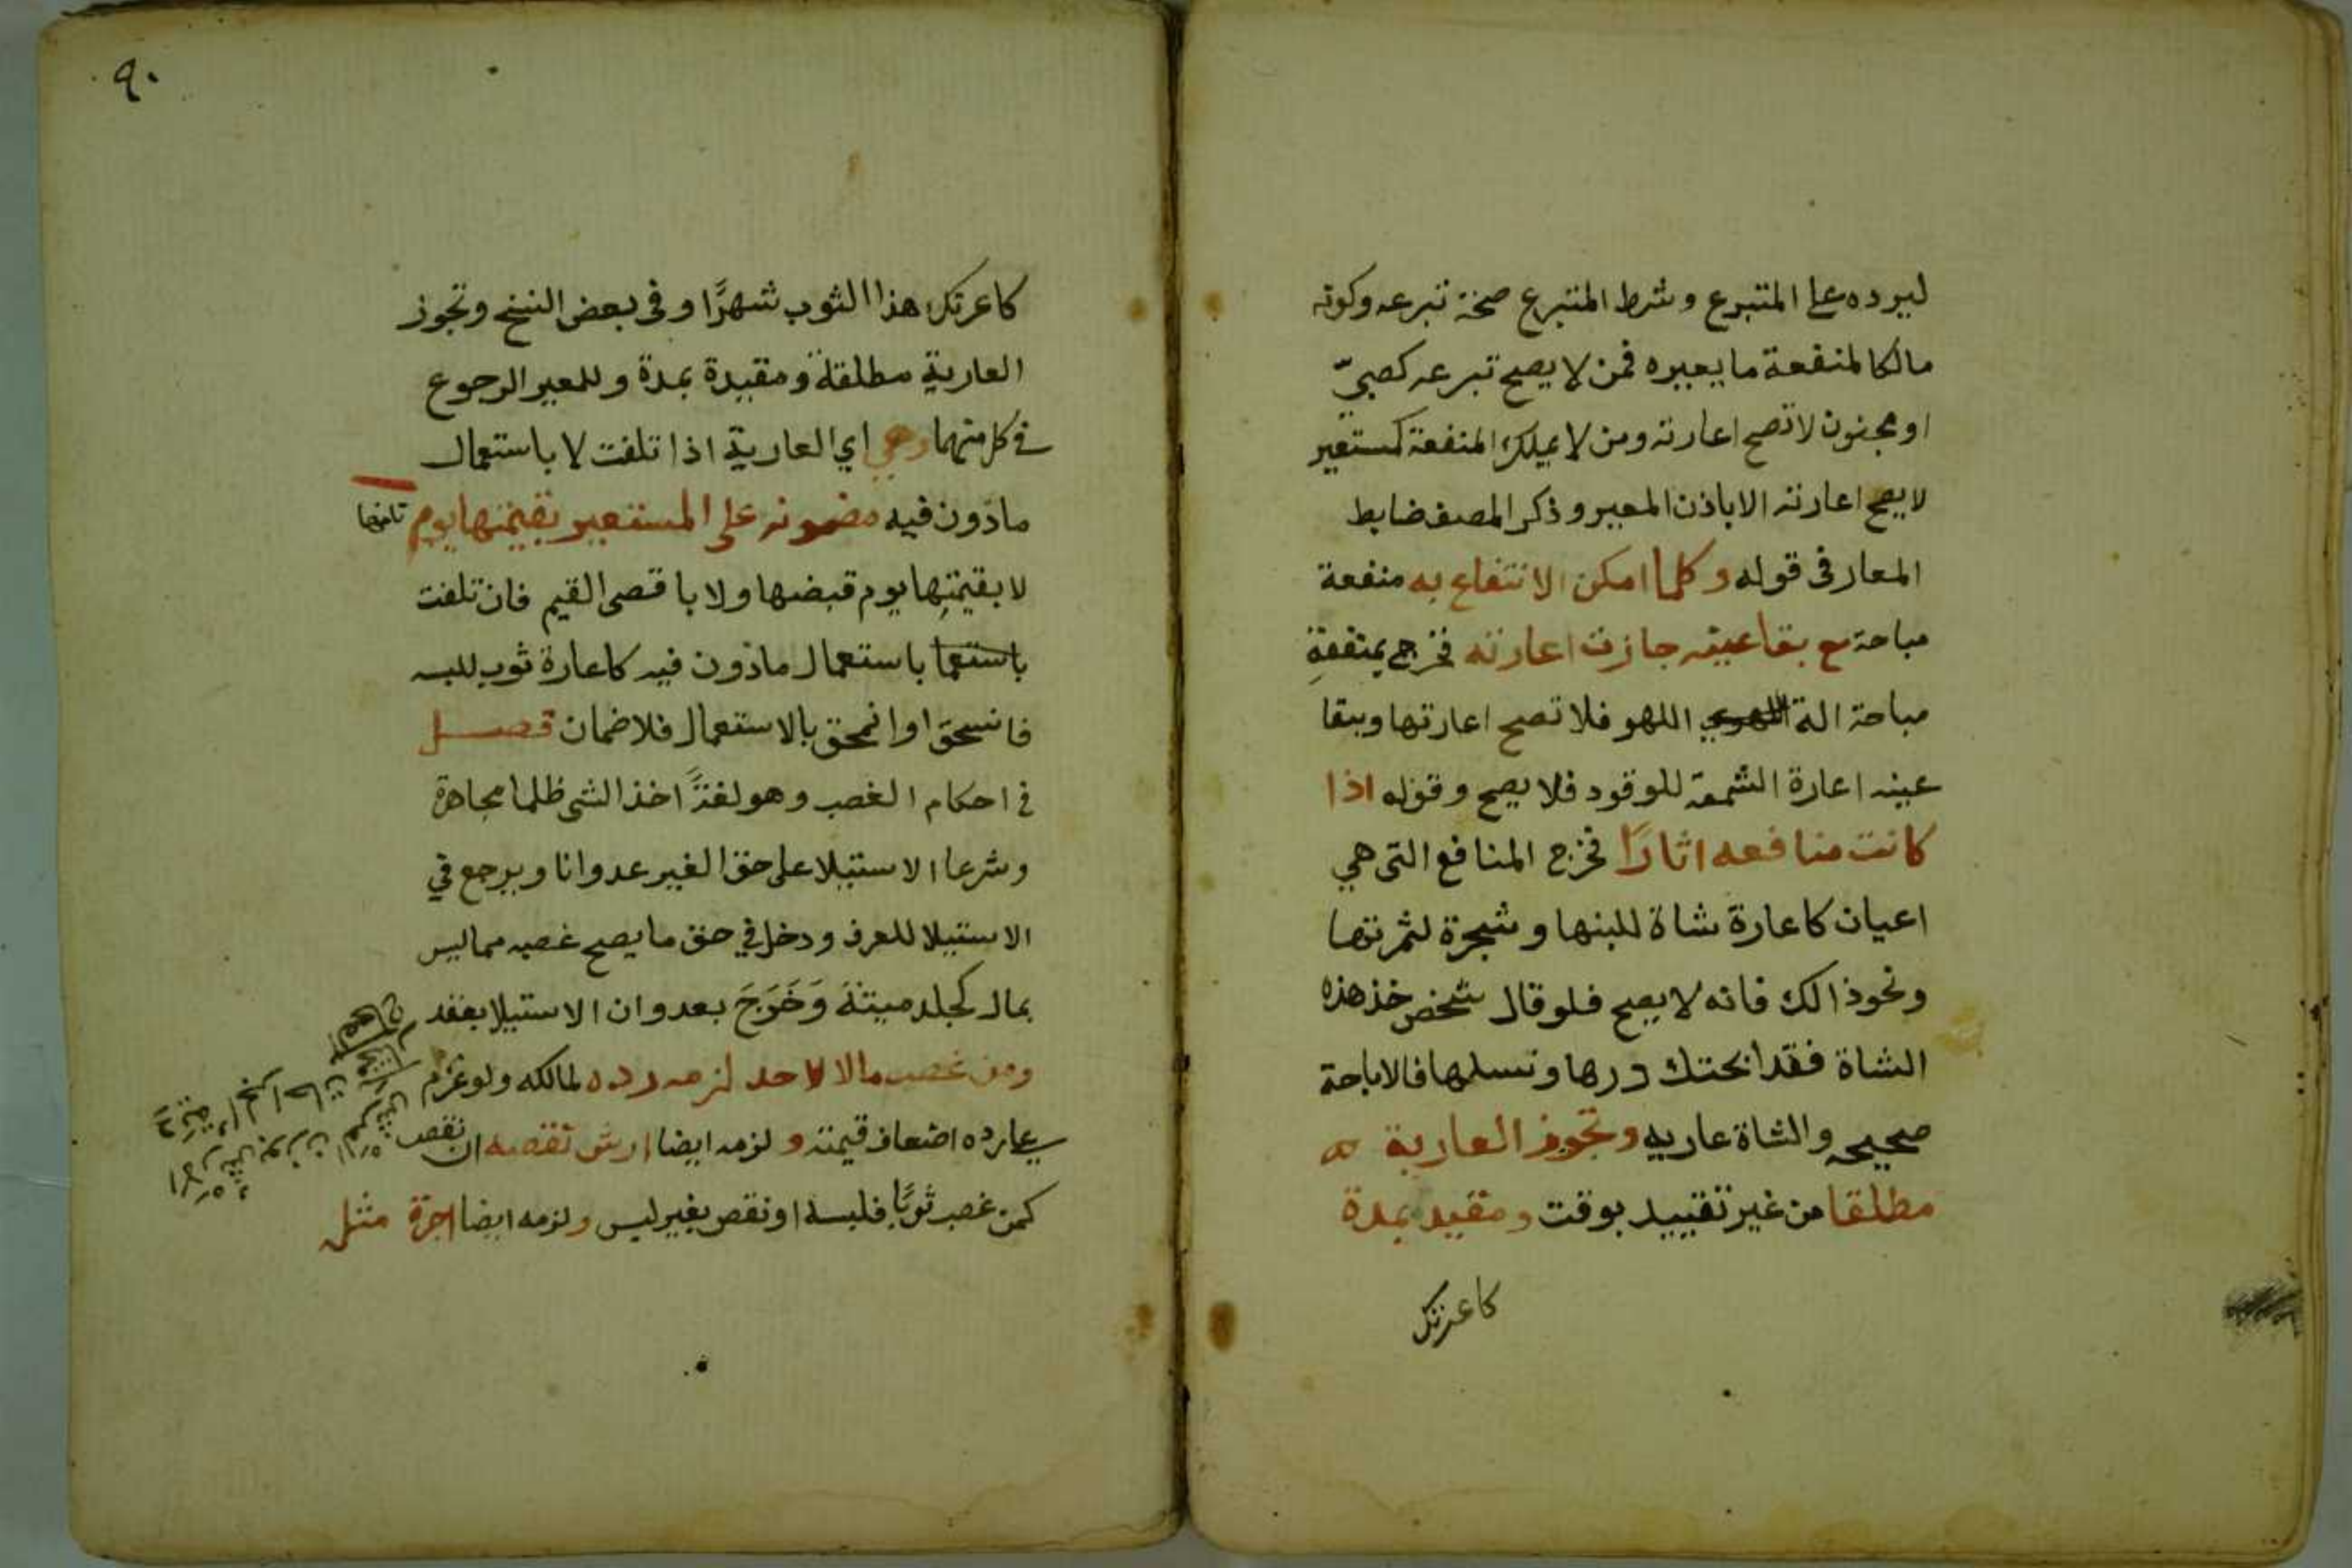 ليرده على المتبرع وشرط المتبرع صحة تبرعه وكونه
مالكا لمنفعة ما يعيره فمن لا يصح تبرعه كصبيّ
او مجنون لا تصح اعارته ومن لا يملك المنفعة كمستعير
لا يصح اعارته الا باذن المعير وذكر المصنف ضابط
المعار فى قوله وكلما امكن الانتفاع به منفعة
مباحة مع بقا عينه جازت اعارته فخرج بمنفعةٍ
مباحة الة اللهو فلا تصح اعارتها وببقا
عينه اعارة الشمعة للوقود فلا يصح وقوله اذا
كانت منافعه اثارًا فخرج المنافع التى هي
اعيان كاعارة شاة للبنها وشجرة لثمرتها
ونحو ذالك فانه لا يصح فلو قال شخص خذ هذه
الشاة فقد ابحتك درها ونسلها فالاباحة
صحيحه والشاة عاريه وتجوز العارية
مطلقا من غير تقييد بوقت ومقيد بمدة
كاعرتك
٩٠
كاعرتك هذا الثوب شهرًا وفى بعض النسخ وتجوز
العارية مطلقة ومقيدة بمدة وللمعير الرجوع
في كل منهما وهي اي العارية اذا تلفت لا باستعمال
ماذون فيه مضمونه على المستعير بقيمتها يوم تلفها
لا بقيمتها يوم قبضها ولا باقصى القيم فان تلفت
باستعما باستعمال ماذون فيه كاعارة ثوب للبسه
فانسحق او انمحق بالاستعمال فلا ضمان فصل
في احكام الغصب وهو لغةً اخذ الشى ظلما مجاهرة
وشرعا الاستيلا على حق الغير عدوانا ويرجع في
الاستيلا للعرف ودخل في حق ما يصح غصبه مما ليس
بمال كجلد ميتة وَخَرَجَ بعدوان الاستيلا بعقد
ومن غصب مالا لاحد لزمه رده لمالكه ولو غرم
على رده اضعاف قيمته ولزمه ايضا ارش نقصه ان نقص
كمن غصب ثوبًا فلبسه او نقص بغير لبس ولزمه ايضا اجرة مثل